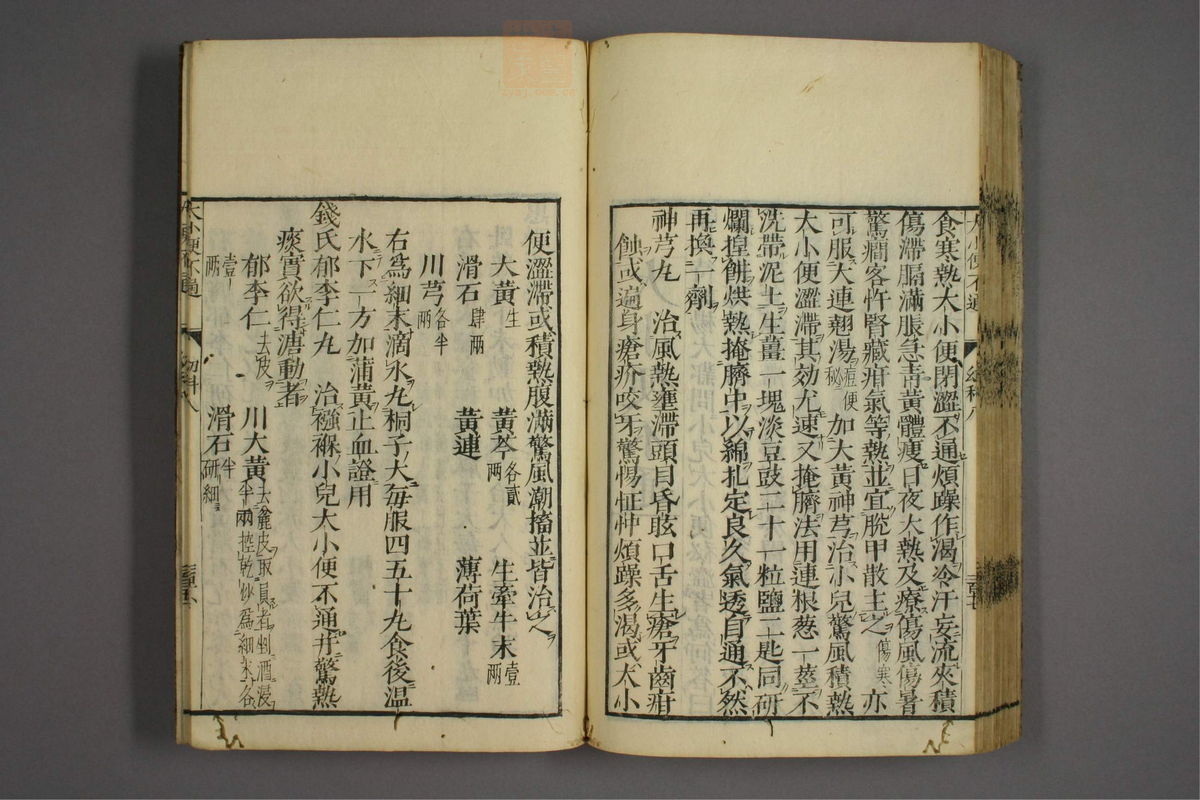 食寒熱大小便閉澀不通煩躁作渴冷汗妄流夾積
傷滯膈滿脹急青黃體瘦日夜大熱及療傷風傷暑
驚癇客忤腎藏疳氣等熱並宜脫甲散主之傷寒亦
可服大連翹湯痘便秘加大黃神芎治小兒驚風積熱
大小便澀滯其効尤速又掩臍法用連根葱一莖不
洗帶泥土生薑一塊淡豆豉二十一粒鹽二匙同研
爛揑餅烘熱掩臍中以綿扎定良久氣透自通不然
再換一劑
神芎丸 治風熱壅滯頭目昏眩口舌生瘡牙齒疳
蝕或遍身瘡疥咬牙驚惕怔忡煩躁多渴或大小
便澀滯或積熱腹滿驚風潮搐並皆治之
大黃生 黃芩各貳兩 生牽牛末壹兩
滑石肆兩 黃連 薄荷葉
川芎各半兩
右爲細末滴水丸桐子大每服四五十丸食後溫
水下一方加蒲黃止血證用
錢氏郁李仁丸 治襁褓小兒大小便不通并驚熱
痰實欲得溏動者
郁李仁去皮 川大黃去麄皮取實者剉酒浸半兩控乾炒爲細末各
壹兩 滑石半兩研細
大小便不通
幼科八